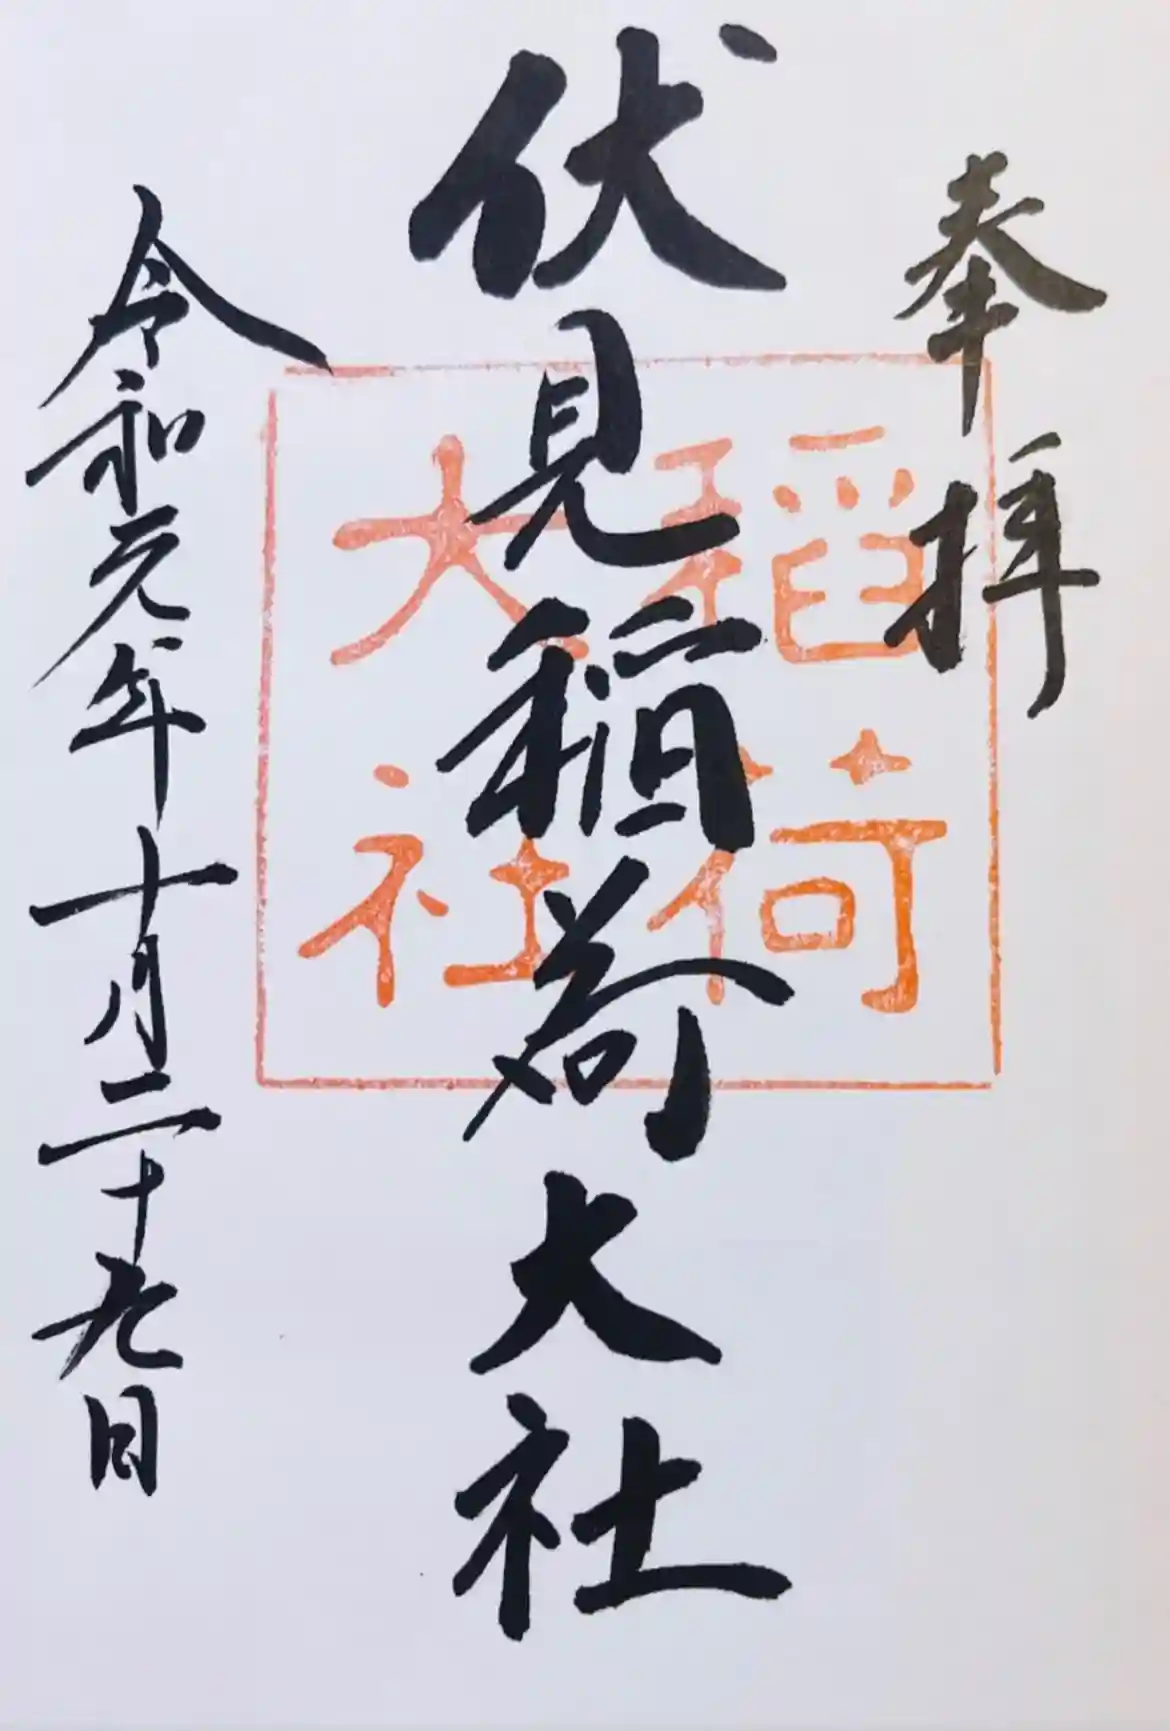 奉拝
伏見稲荷大社
稲荷
大社
令和元年十月二十九日